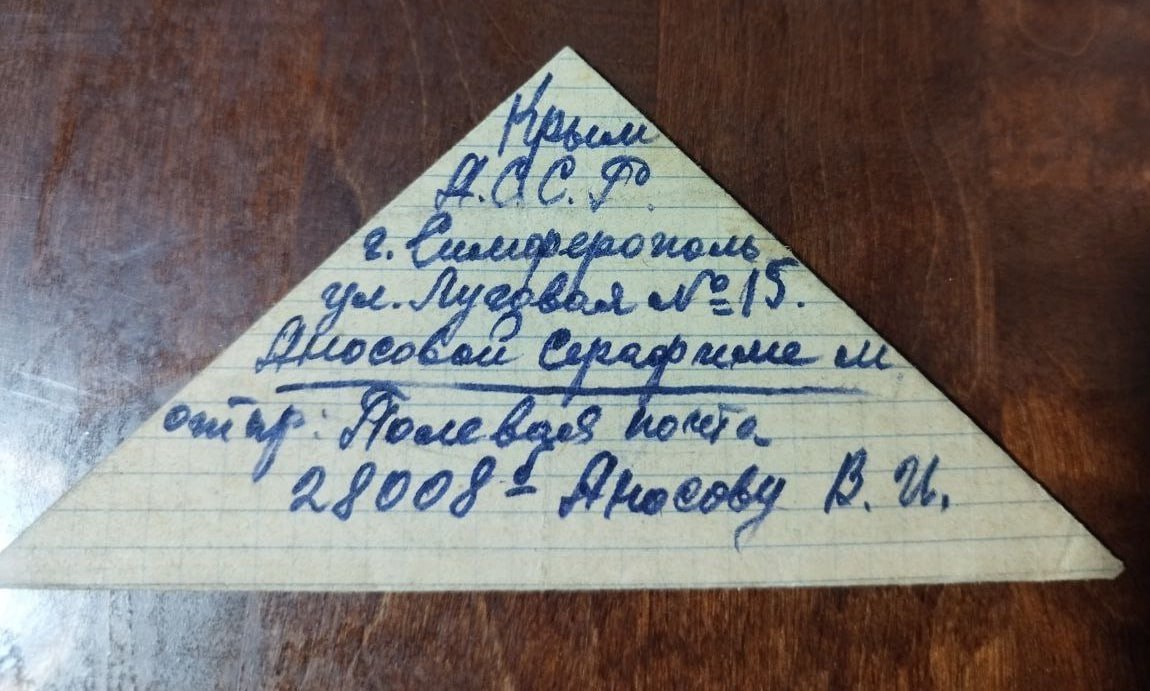 Крым
А.С.С.Р.
г. Симферополь
ул. Луговая № 15.
Аносовой Серафиме М
отпр: Полевая почта
28008 б Аносову В. И.